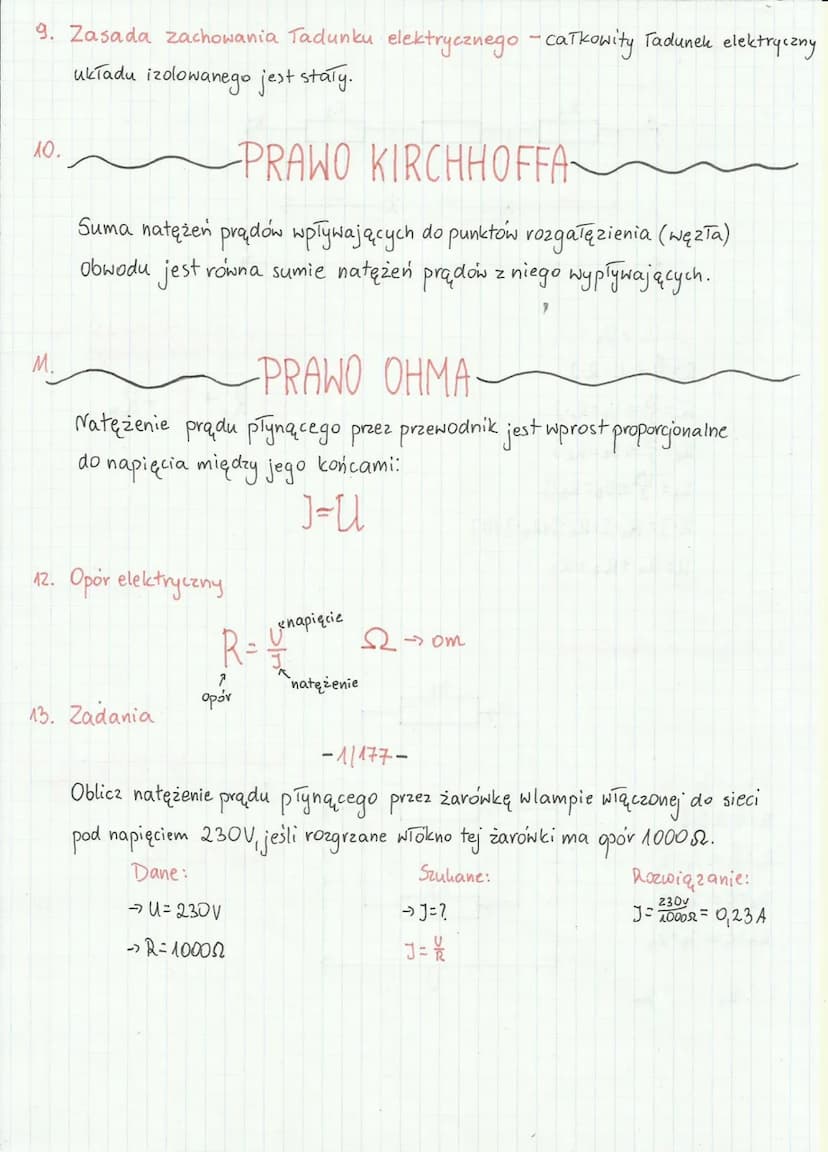 9. Zasada zachowania ładunku elektrycznego – całkowity ładunek elektryczny
układu izolowanego jest stały.
10. PRAWO KIRCHHOFFA
Suma natężeń prądów wpływających do punktów rozgałęzienia (węzła)
Obwodu jest równa sumie natężeń prądów z niego wypływających.
11. PRAWO OHMA
Natężenie prądu płynącego przez przewodnik jest wprost proporcjonalne
do napięcia między jego końcami:
J=U
12. Opór elektryczny
R = U/J Ω → om
napięcie
natężenie
opór
13. Zadania
-1/177-
Oblicz natężenie prądu płynącego przez żarówkę w lampie włączonej do sieci
pod napięciem 230V, jeśli rozgrzane włókno tej żarówki ma opór 1000Ω.
Dane: Szukane: Rozwiązanie:
→ U = 230V → J=? J = 230V/1000Ω = 0,23A
→ R = 1000Ω J = U/R